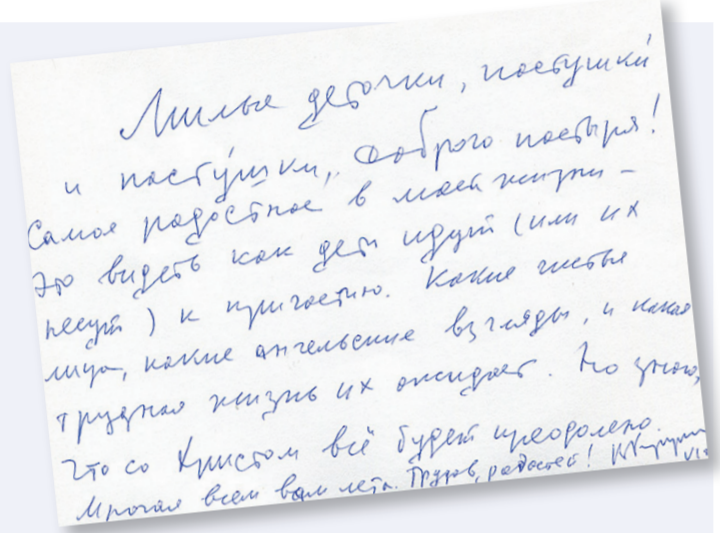 Милые деточки, пастушки́
и пасту́шки, Доброго пастыря!
Самое радостное в моей жизни –
это видеть как дети идут (или их
несут) к причастию. Какие чистые
лица, какие ангельские взгляды, и какая
трудная жизнь их ожидает. Но знаю,
что со Христом всё будет преодолено.
Многая всем вам лета. Трудов, радостей!